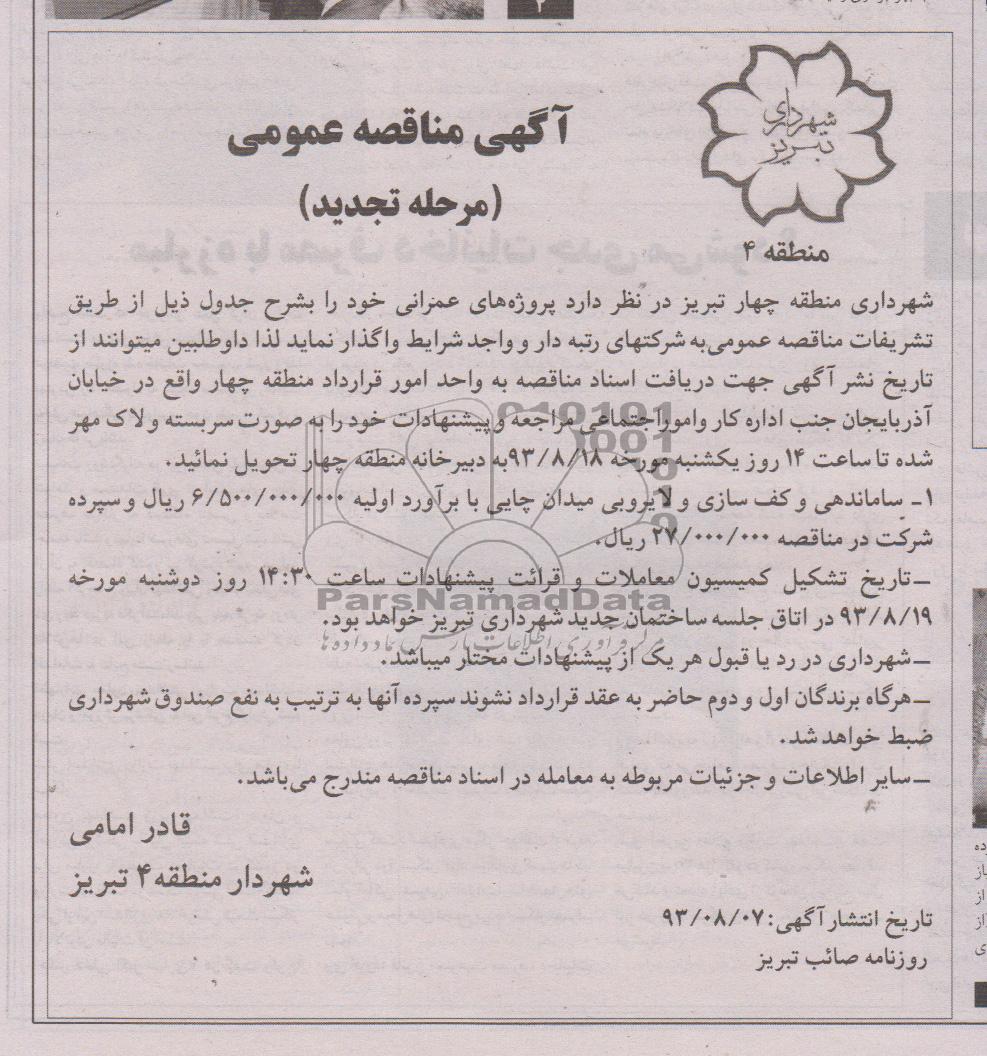 شهرداری
تبریز
منطقه ۴
آگهی مناقصه عمومی
(مرحله تجدید)
شهرداری منطقه چهار تبریز در نظر دارد پروژه‌های عمرانی خود را بشرح جدول ذیل از طریق
تشریفات مناقصه عمومی‌به شرکتهای رتبه دار و واجد شرایط واگذار نماید لذا داوطلبین میتوانند از
تاریخ نشر آگهی جهت دریافت اسناد مناقصه به واحد امور قرارداد منطقه چهار واقع در خیابان
آذربایجان جنب اداره کار وامور اجتماعی مراجعه و پیشنهادات خود را به صورت سربسته و لاک مهر
شده تا ساعت ۱۴ روز یکشنبه مورخه ۹۳/۸/۱۸به دبیرخانه منطقه چهار تحویل نمائید.
۱- ساماندهی و کف سازی و لایروبی میدان چایی با برآورد اولیه ۶/۵۰۰/۰۰۰/۰۰۰ ریال و سپرده
شرکت در مناقصه ۲۷/۰۰۰/۰۰۰ ریال.
–تاریخ تشکیل کمیسیون معاملات و قرائت پیشنهادات ساعت ۱۴:۳۰ روز دوشنبه مورخه
۹۳/۸/۱۹ در اتاق جلسه ساختمان جدید شهرداری تبریز خواهد بود.
–شهرداری در رد یا قبول هر یک از پیشنهادات مختار میباشد.
–هرگاه برندگان اول و دوم حاضر به عقد قرارداد نشوند سپرده آنها به ترتیب به نفع صندوق شهرداری
ضبط خواهد شد.
–سایر اطلاعات و جزئیات مربوطه به معامله در اسناد مناقصه مندرج می‌باشد.
قادر امامی
شهردار منطقه ۴ تبریز
تاریخ انتشار آگهی: ۹۳/۰۸/۰۷
روزنامه صائب تبریز
ParsNamadData
مرکز فرآوری اطلاعات پارس نماد داده ها